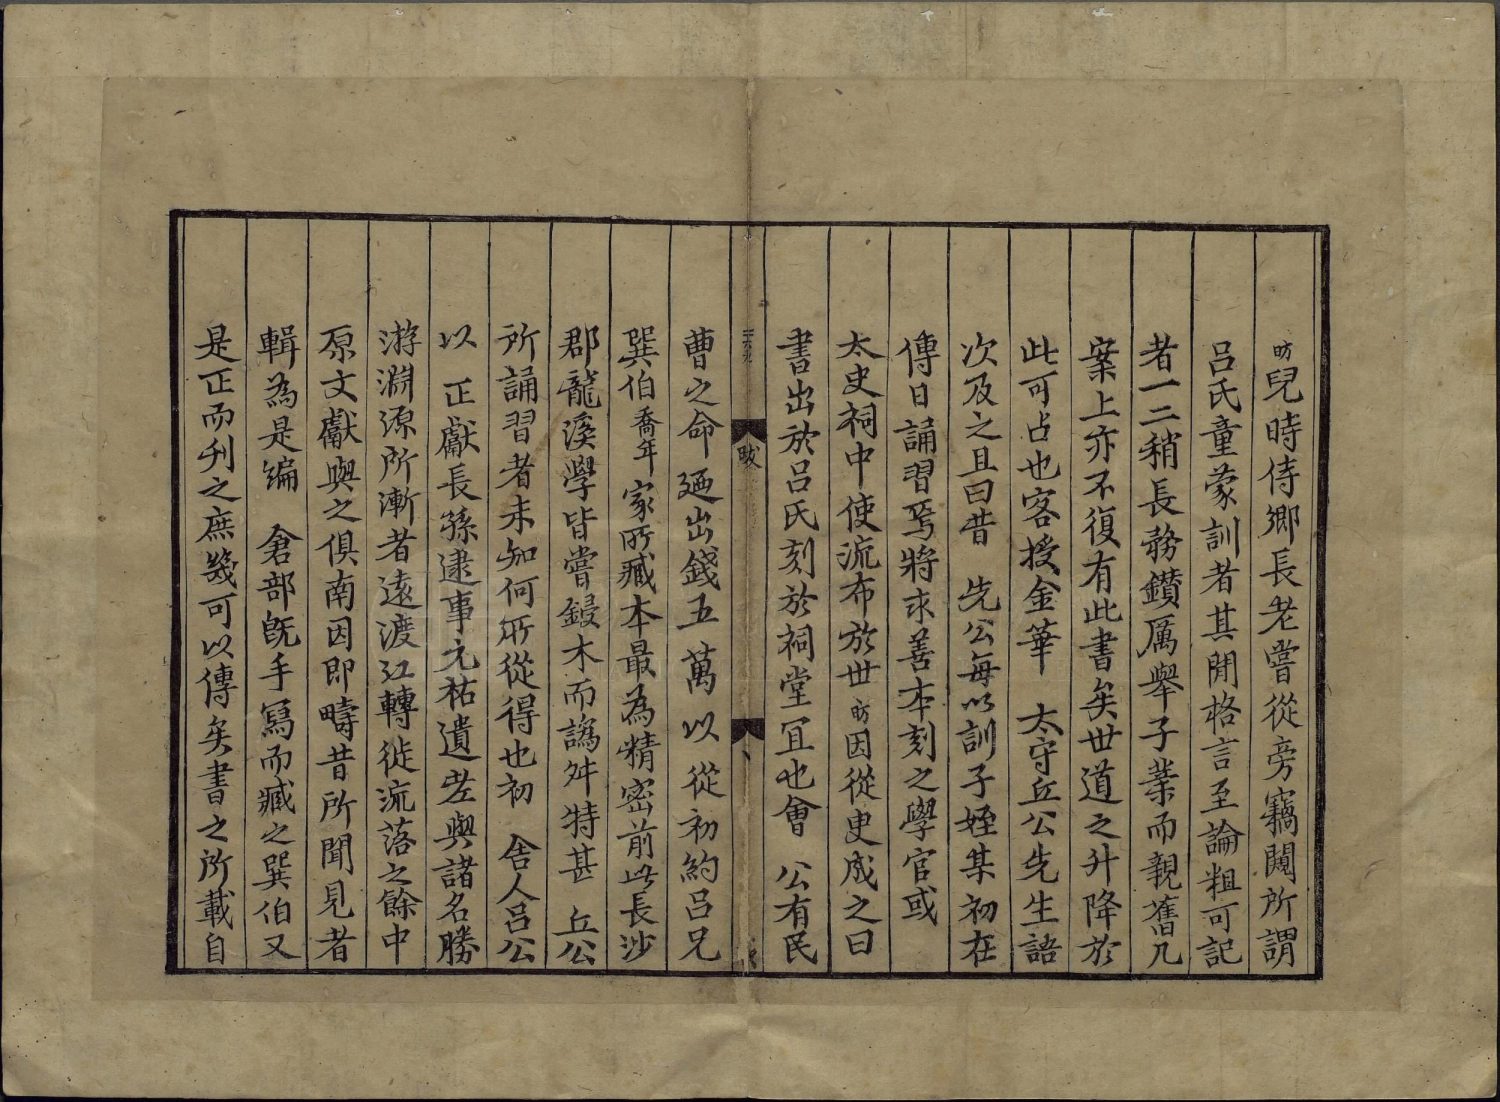 昉兒時侍鄉長老嘗從旁竊闚所謂
呂氏童蒙訓者其閒格言至論粗可記
者一二稍長務鑚厲舉子業而親舊几
案上亦不復有此書矣世道之升降於
此可占也客授金華　太守丘公先生語
次及之且曰昔　先公每以訓子姪某初在
傳日誦習焉將求善本刻之學官或
太史祠中使流布於世昉因從臾成之曰
書出於呂氏刻於祠堂宜也會　公有民
跋
曹之命廼出錢五萬以從初約呂兄
巽伯喬年家所藏本最為精密前此長沙
郡龍溪學皆嘗鋟木而譌舛特甚　丘公
所誦習者未知何所從得也初　舍人呂公
以　正獻長孫逮事元祐遺老與諸名勝
游淵源所漸者遠渡江轉徙流落之餘中
原文獻與之俱南因即疇昔所聞見者
輯為是編　倉部旣手寫而藏之巽伯又
是正而刋之庶幾可以傳矣書之所載自